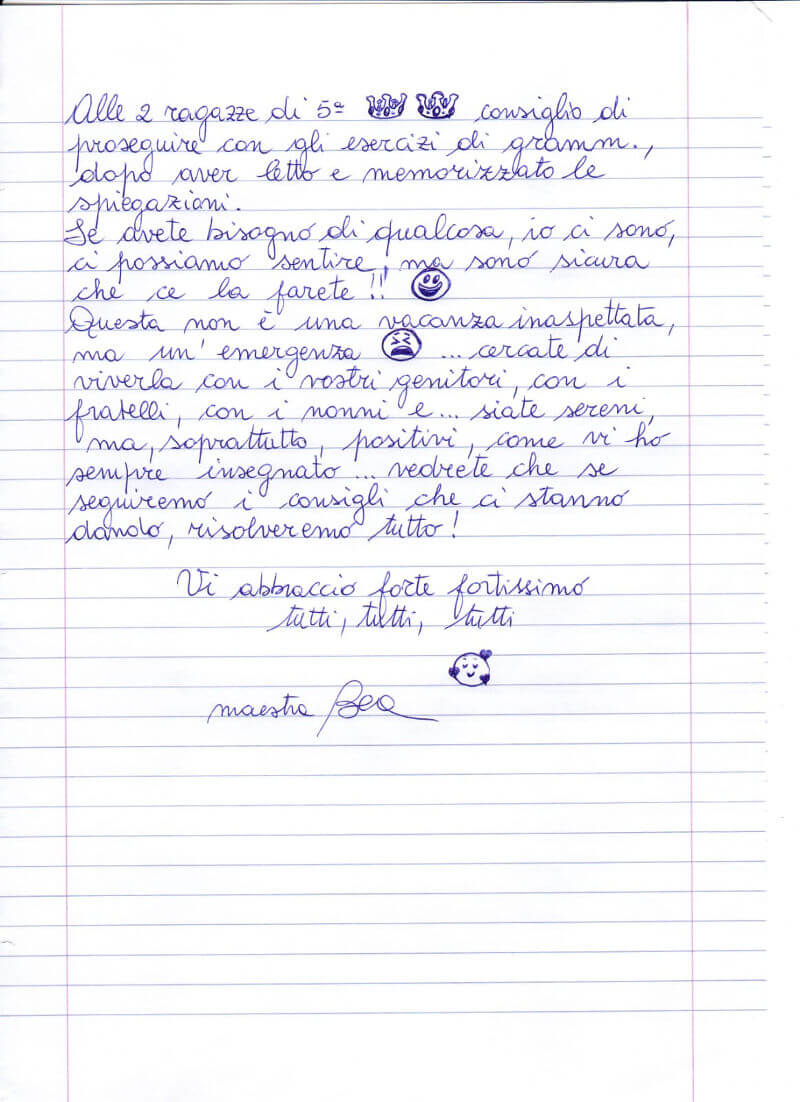 Alle 2 ragazze di 5ª consiglio di
proseguire con gli esercizi di gramm.,
dopo aver letto e memorizzato le
spiegazioni.
Se avete bisogno di qualcosa, io ci sono,
ci possiamo sentire, ma sono sicura
che ce la farete !!
Questa non è una vacanza inaspettata,
ma un' emergenza ... cercate di
viverla con i vostri genitori, con i
fratelli, con i nonni e ... siate sereni,
ma, soprattutto, positivi, come vi ho
sempre insegnato ... vedrete che se
seguiremo i consigli che ci stanno
dando, risolveremo tutto !
Vi abbraccio forte fortissimo
tutti, tutti, tutti
maestra Bea